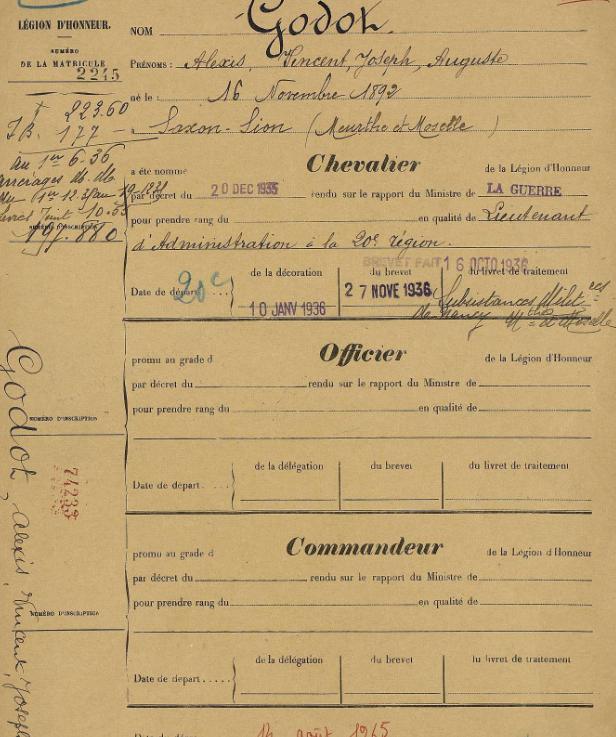 LÉGION D'HONNEUR.
NUMÉRO
DE LA MATRICULE
2245
NOM Godot.
PRÉNOMS : Alexis, Vincent, Joseph, Auguste
né le : 16 Novembre 1892
à Saxon-Sion (Meurthe et Moselle)
223.60
177
au 1er 6.36
NUMÉRO D'INSCRIPTION
197.880
a été nommé Chevalier de la Légion d'Honneur
par décret du 20 DEC 1935 rendu sur le rapport du Ministre de LA GUERRE
pour prendre rang du en qualité de Lieutenant
d'Administration à la 20e région.
BREVET FAIT 16 OCTO 1936
de la décoration du brevet du livret de traitement
Date de départ 20e 10 JANV 1936 27 NOVE 1936 Subsistances Milit res
de Nancy Mthe et Moselle
promu au grade d Officier de la Légion d'Honneur
par décret du rendu sur le rapport du Ministre de
pour prendre rang du en qualité de
NUMÉRO D'INSCRIPTION
de la délégation du brevet du livret de traitement
Date de départ
74233
promu au grade d Commandeur de la Légion d'Honneur
par décret du rendu sur le rapport du Ministre de
pour prendre rang du en qualité de
NUMÉRO D'INSCRIPTION
de la délégation du brevet du livret de traitement
Date de départ
août 1965
Godot, Alexis, Vincent, Joseph